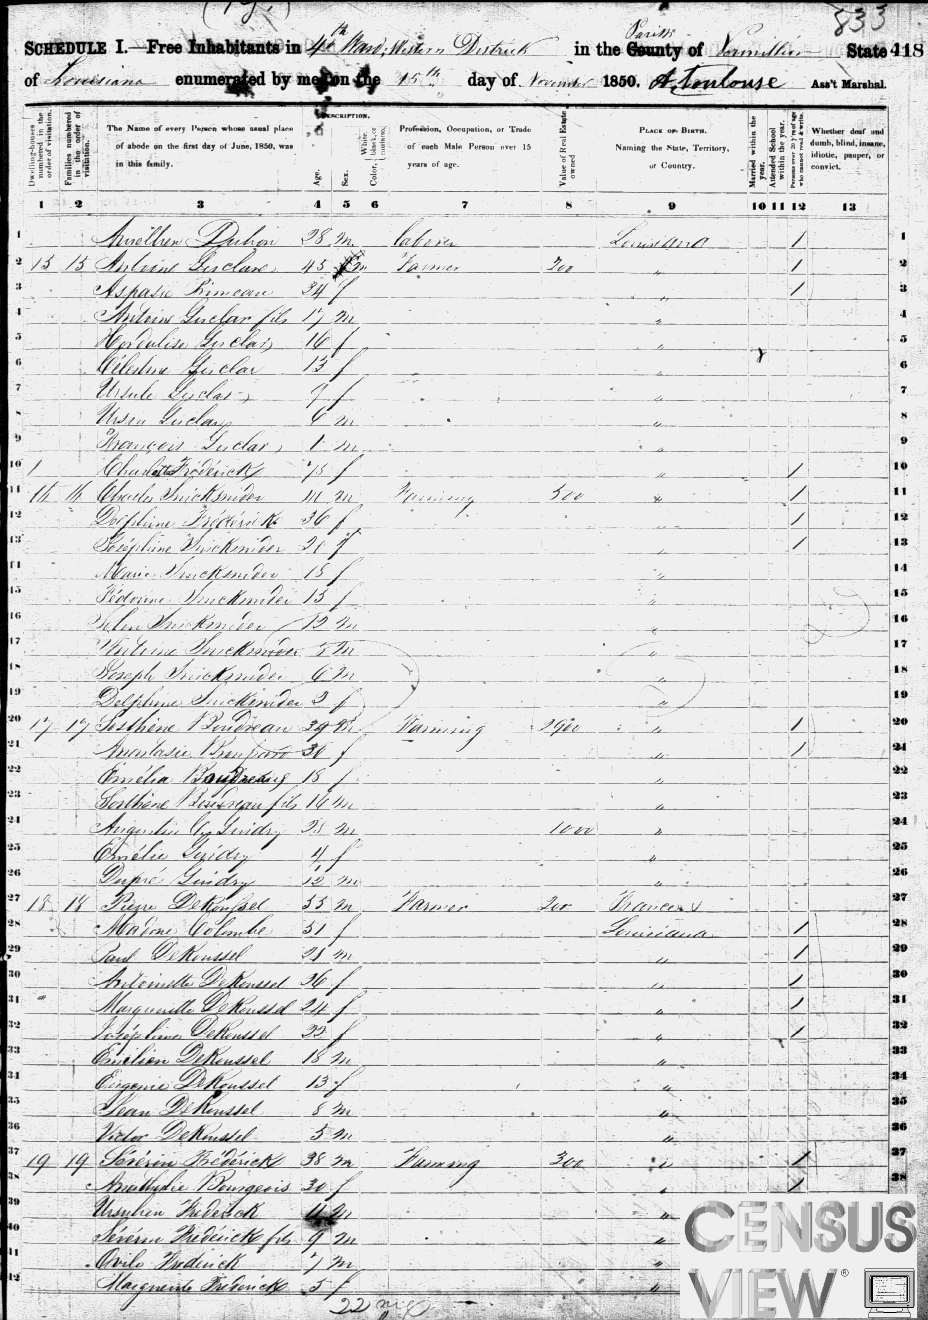 833
SCHEDULE I.—Free Inhabitants in 4th Ward, Western District in the Parish County of Vermillion State 418
of Louisiana enumerated by me, on the 15th day of November 1850. A Toulouse Ass't Marshal.
Dwelling-houses numbered in the order of visitation.
Families numbered in the order of visitation.
The Name of every Person whose usual place of abode on the first day of June, 1850, was in this family.
DESCRIPTION.
Age.
Sex.
Color, White, black, or mulatto.
Profession, Occupation, or Trade of each Male Person over 15 years of age.
Value of Real Estate owned.
PLACE OF BIRTH. Naming the State, Territory, or Country.
Married within the year.
Attended School within the year.
Persons over 20 y'rs of age who cannot read & write.
Whether deaf and dumb, blind, insane, idiotic, pauper, or convict.
1 2 3 4 5 6 7 8 9 10 11 12 13
1 Duhon 28 m Laborer Louisiana / 1
2 15 15 Antoine Guclare 45 m Farmer 200 " / 2
3 Aspasie Primeau 34 f " / 3
4 Antoine Guclar fils 17 m " 4
5 Guclar 16 f " 5
6 Célestine Guclar 13 f " 6
7 Ursule Guclar 9 f " 7
8 Ursin Guclar 6 m " 8
9 François Guclar 1 m " 9
10 Frédérick 75 f " / 10
11 16 16 Charles Smicksnider m Farming 500 " / 11
12 Delphine Frédérick 36 f " / 12
13 Joséphine Smicksnider 20 f " / 13
14 Marie Smicksnider 15 f " 14
15 Smicksnider 13 f " 15
16 Smicksnider 12 m " 16
17 Smicksnider 5 m " 17
18 Joseph Smicksnider 6 m " 18
19 Delphine Smicksnider 2 f " 19
20 17 17 Sosthène Boudreau 39 m Farming 2900 " / 20
21 Anastasie 30 f " / 21
22 Emélia Boudreau 18 f " 22
23 Sosthène Boudreau fils 16 m " 23
24 Augustin Guidry 28 m 1000 " 24
25 Emélie Guidry 4 f " 25
26 Dupré Guidry 12 m " 26
27 18 18 Pierre DeRoussel 55 m Farmer 200 France 27
28 Colombe 51 f Louisiana / 28
29 Paul DeRoussel 28 m " / 29
30 Antoinette DeRoussel 36 f " / 30
31 Marguerette DeRoussel 24 f " / 31
32 Joséphine DeRoussel 22 f " / 32
33 Emilien DeRoussel 18 m " 33
34 Eugenie DeRoussel 13 f " 34
35 Jean DeRoussel 8 m " 35
36 Victor DeRoussel 5 m " 36
37 19 19 Séverin Frédérick 38 m Farming 300 " / 37
38 Bourgeois 30 f " / 38
39 Ursulien Frederick 11 m "
40 Séverin Frédérick fils 9 m "
41 Ovile Frederick 7 m "
42 Marguerite Frederick 5 f "
22
CENSUS
VIEW®